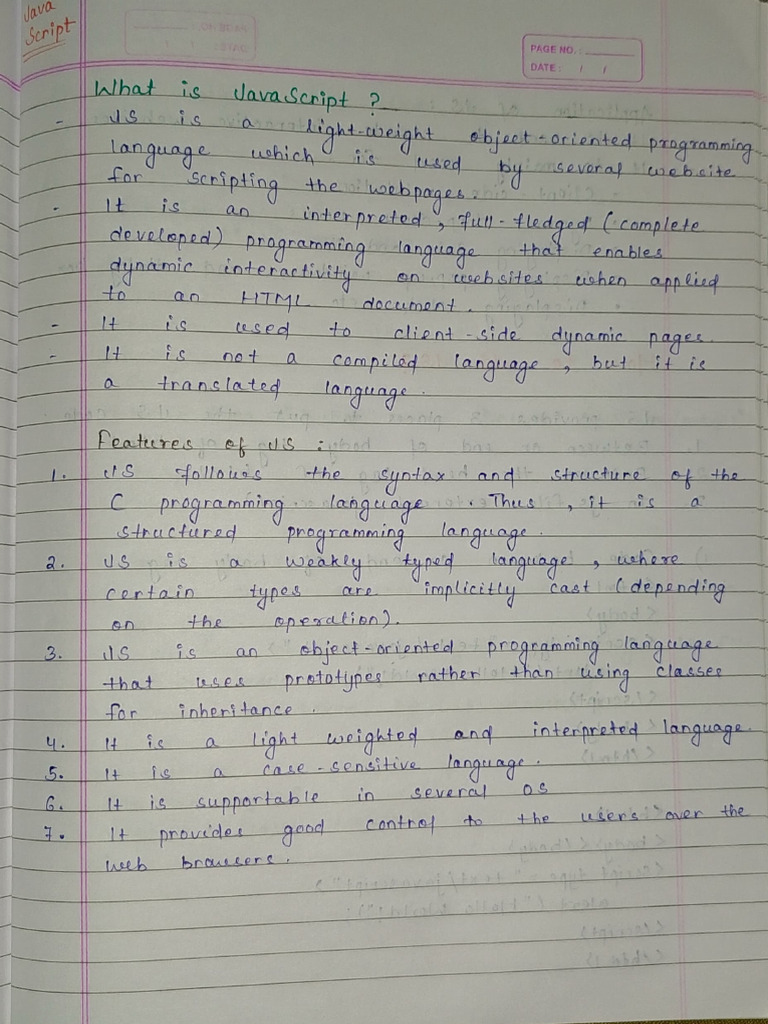 Java
Script
PAGE NO.:
DATE: / /
What is JavaScript ?
- JS is a light-weight object-oriented programming
language which is used by several website
for scripting the webpages.
- It is an interpreted, full-fledged (complete
developed) programming language that enables
dynamic interactivity on websites when applied
to an HTML document.
- It is used to client-side dynamic pages.
- It is not a compiled language, but it is
a translated language.
Features of JS :
1. JS follows the syntax and structure of the
C programming language. Thus, it is a
structured programming language.
2. JS is a weakly typed language, where
certain types are implicitly cast (depending
on the operation).
3. JS is an object-oriented programming language
that uses prototypes rather than using classes
for inheritance.
4. It is a light weighted and interpreted language.
5. It is a case-sensitive language.
6. It is supportable in several OS
7. It provides good control to the users over the
web browsers.